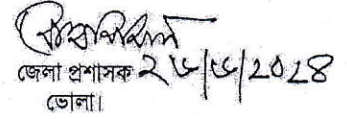 জেলা প্রশাসক ২৬/৬/২০২৪
ভোলা।